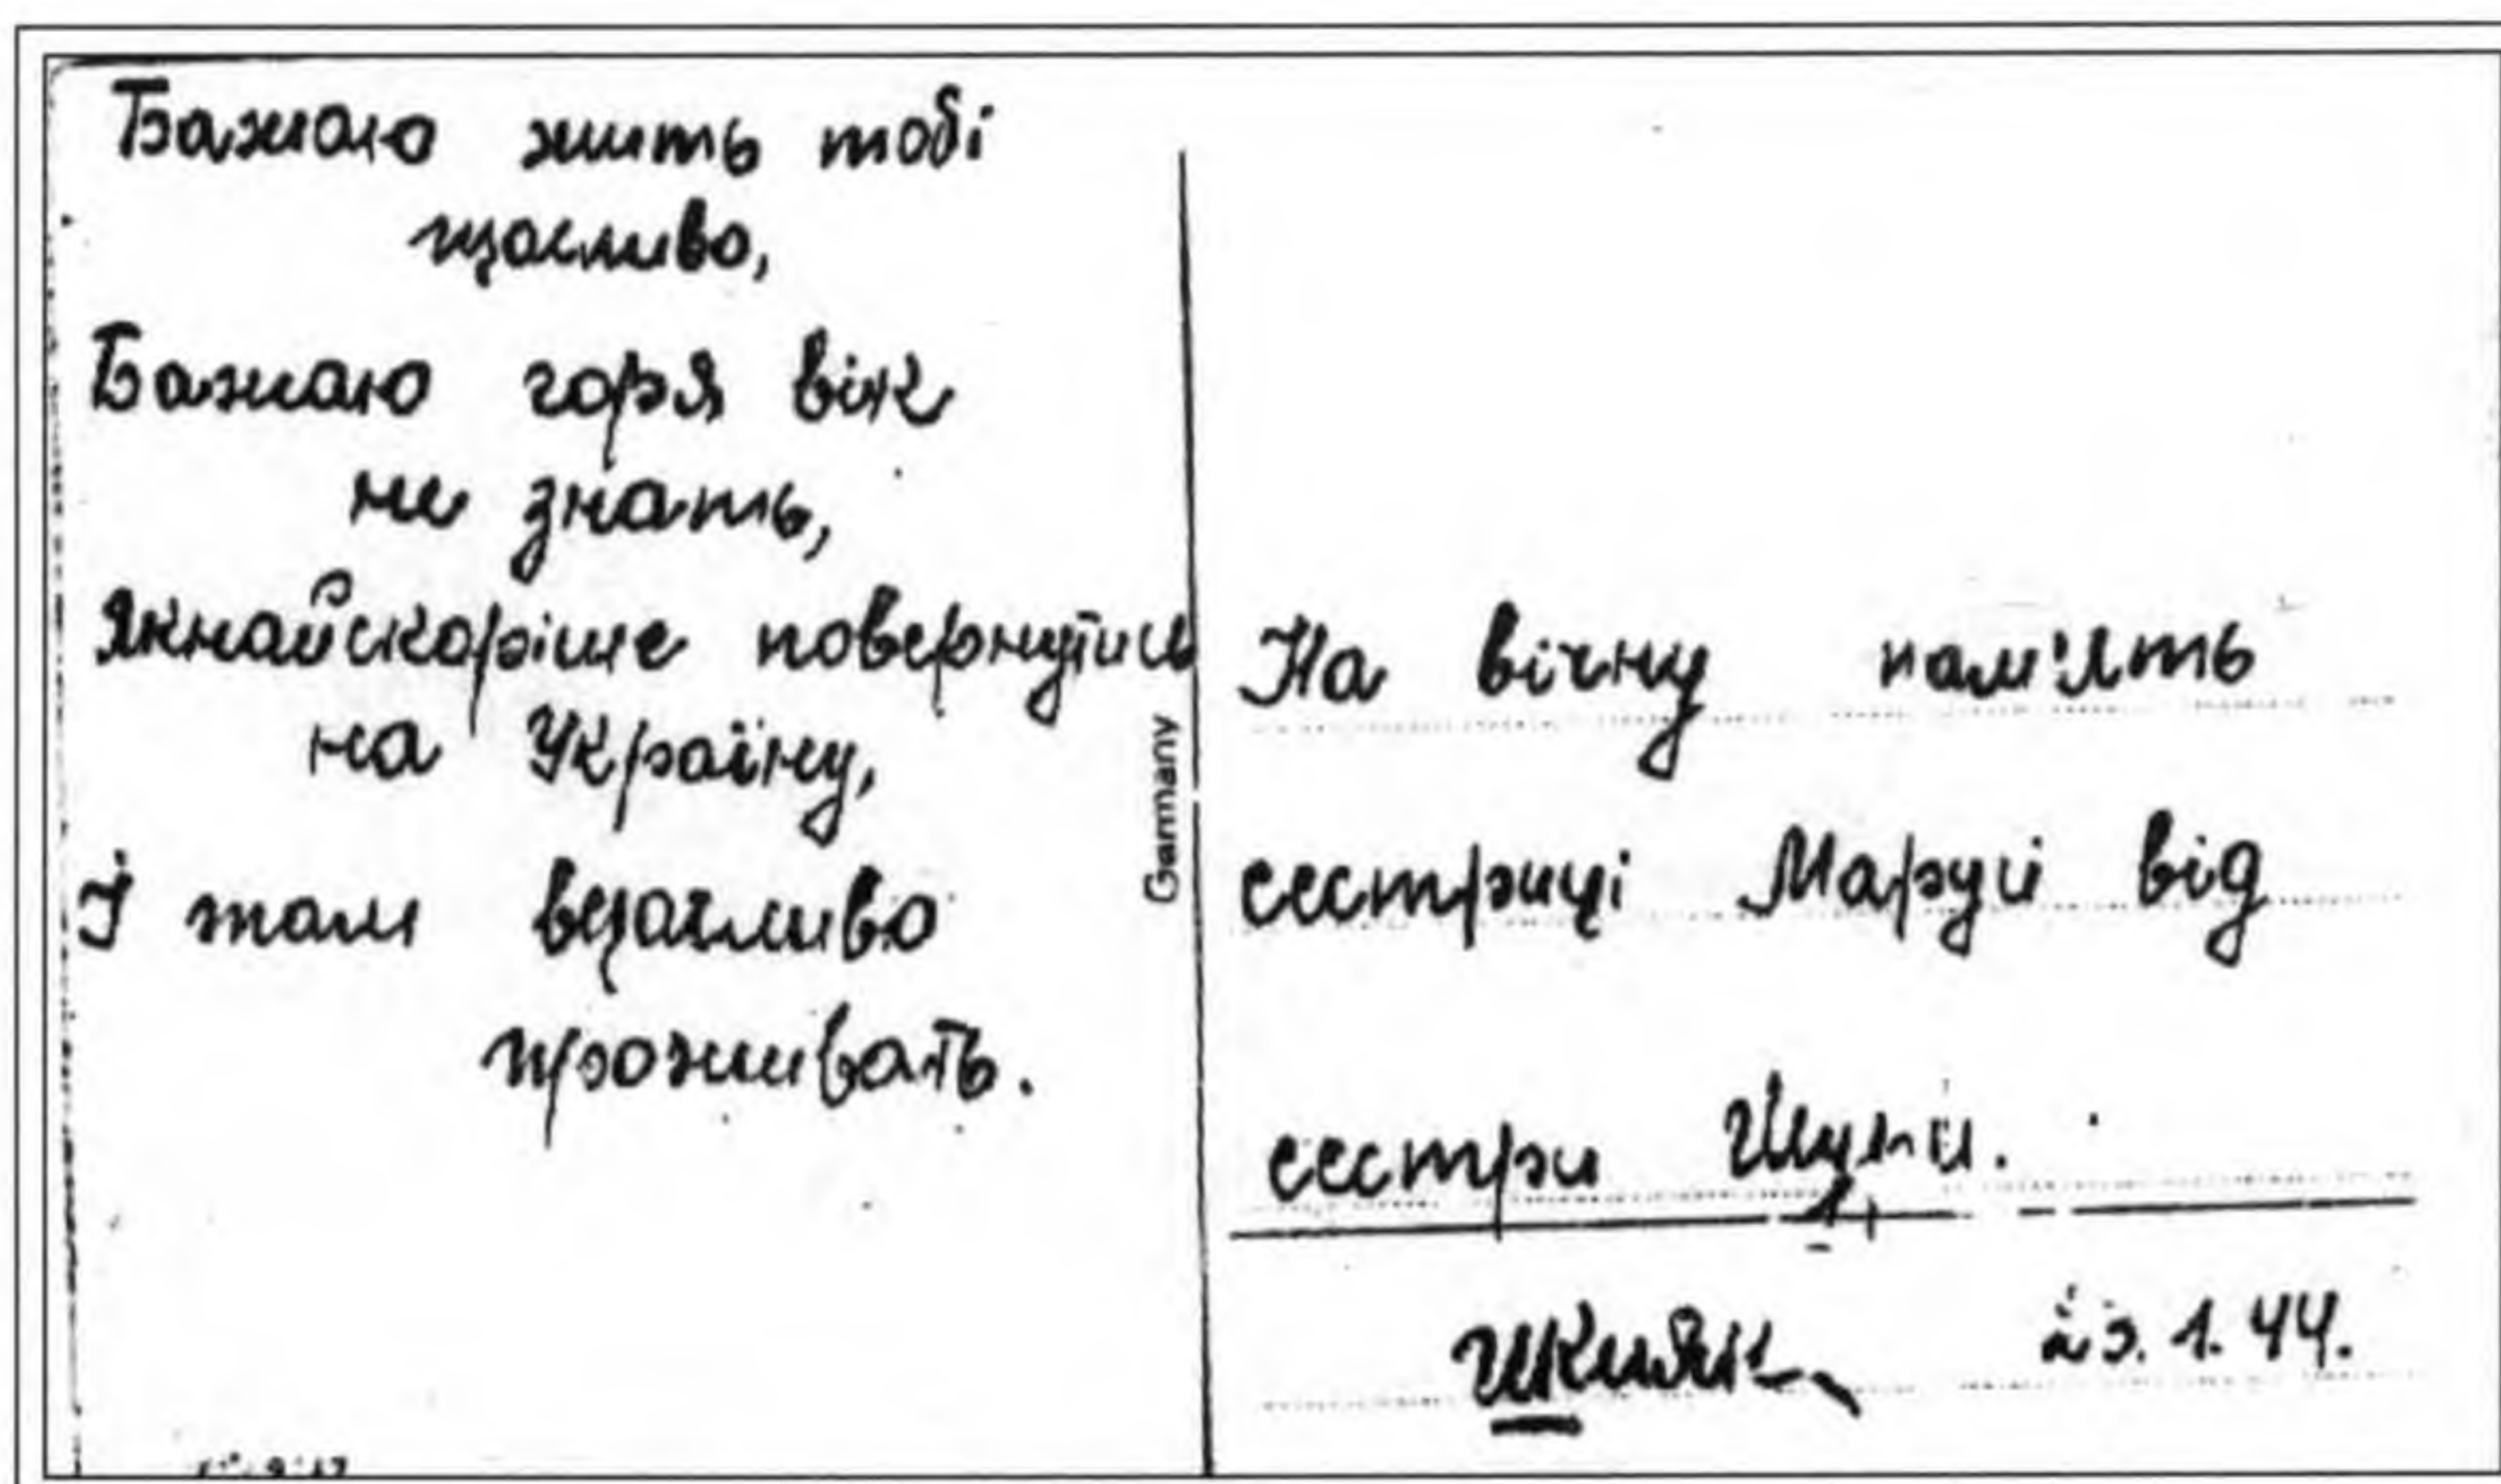 Бажаю жить тобі
щасливо,
Бажаю горя вік
не знать,
Якнайскоріше повернутись
на Україну,
І там вщасливо
проживать.
Germany
На вічну пам'ять
сестриці Марусі від
сестри Шули.
23.1.44.